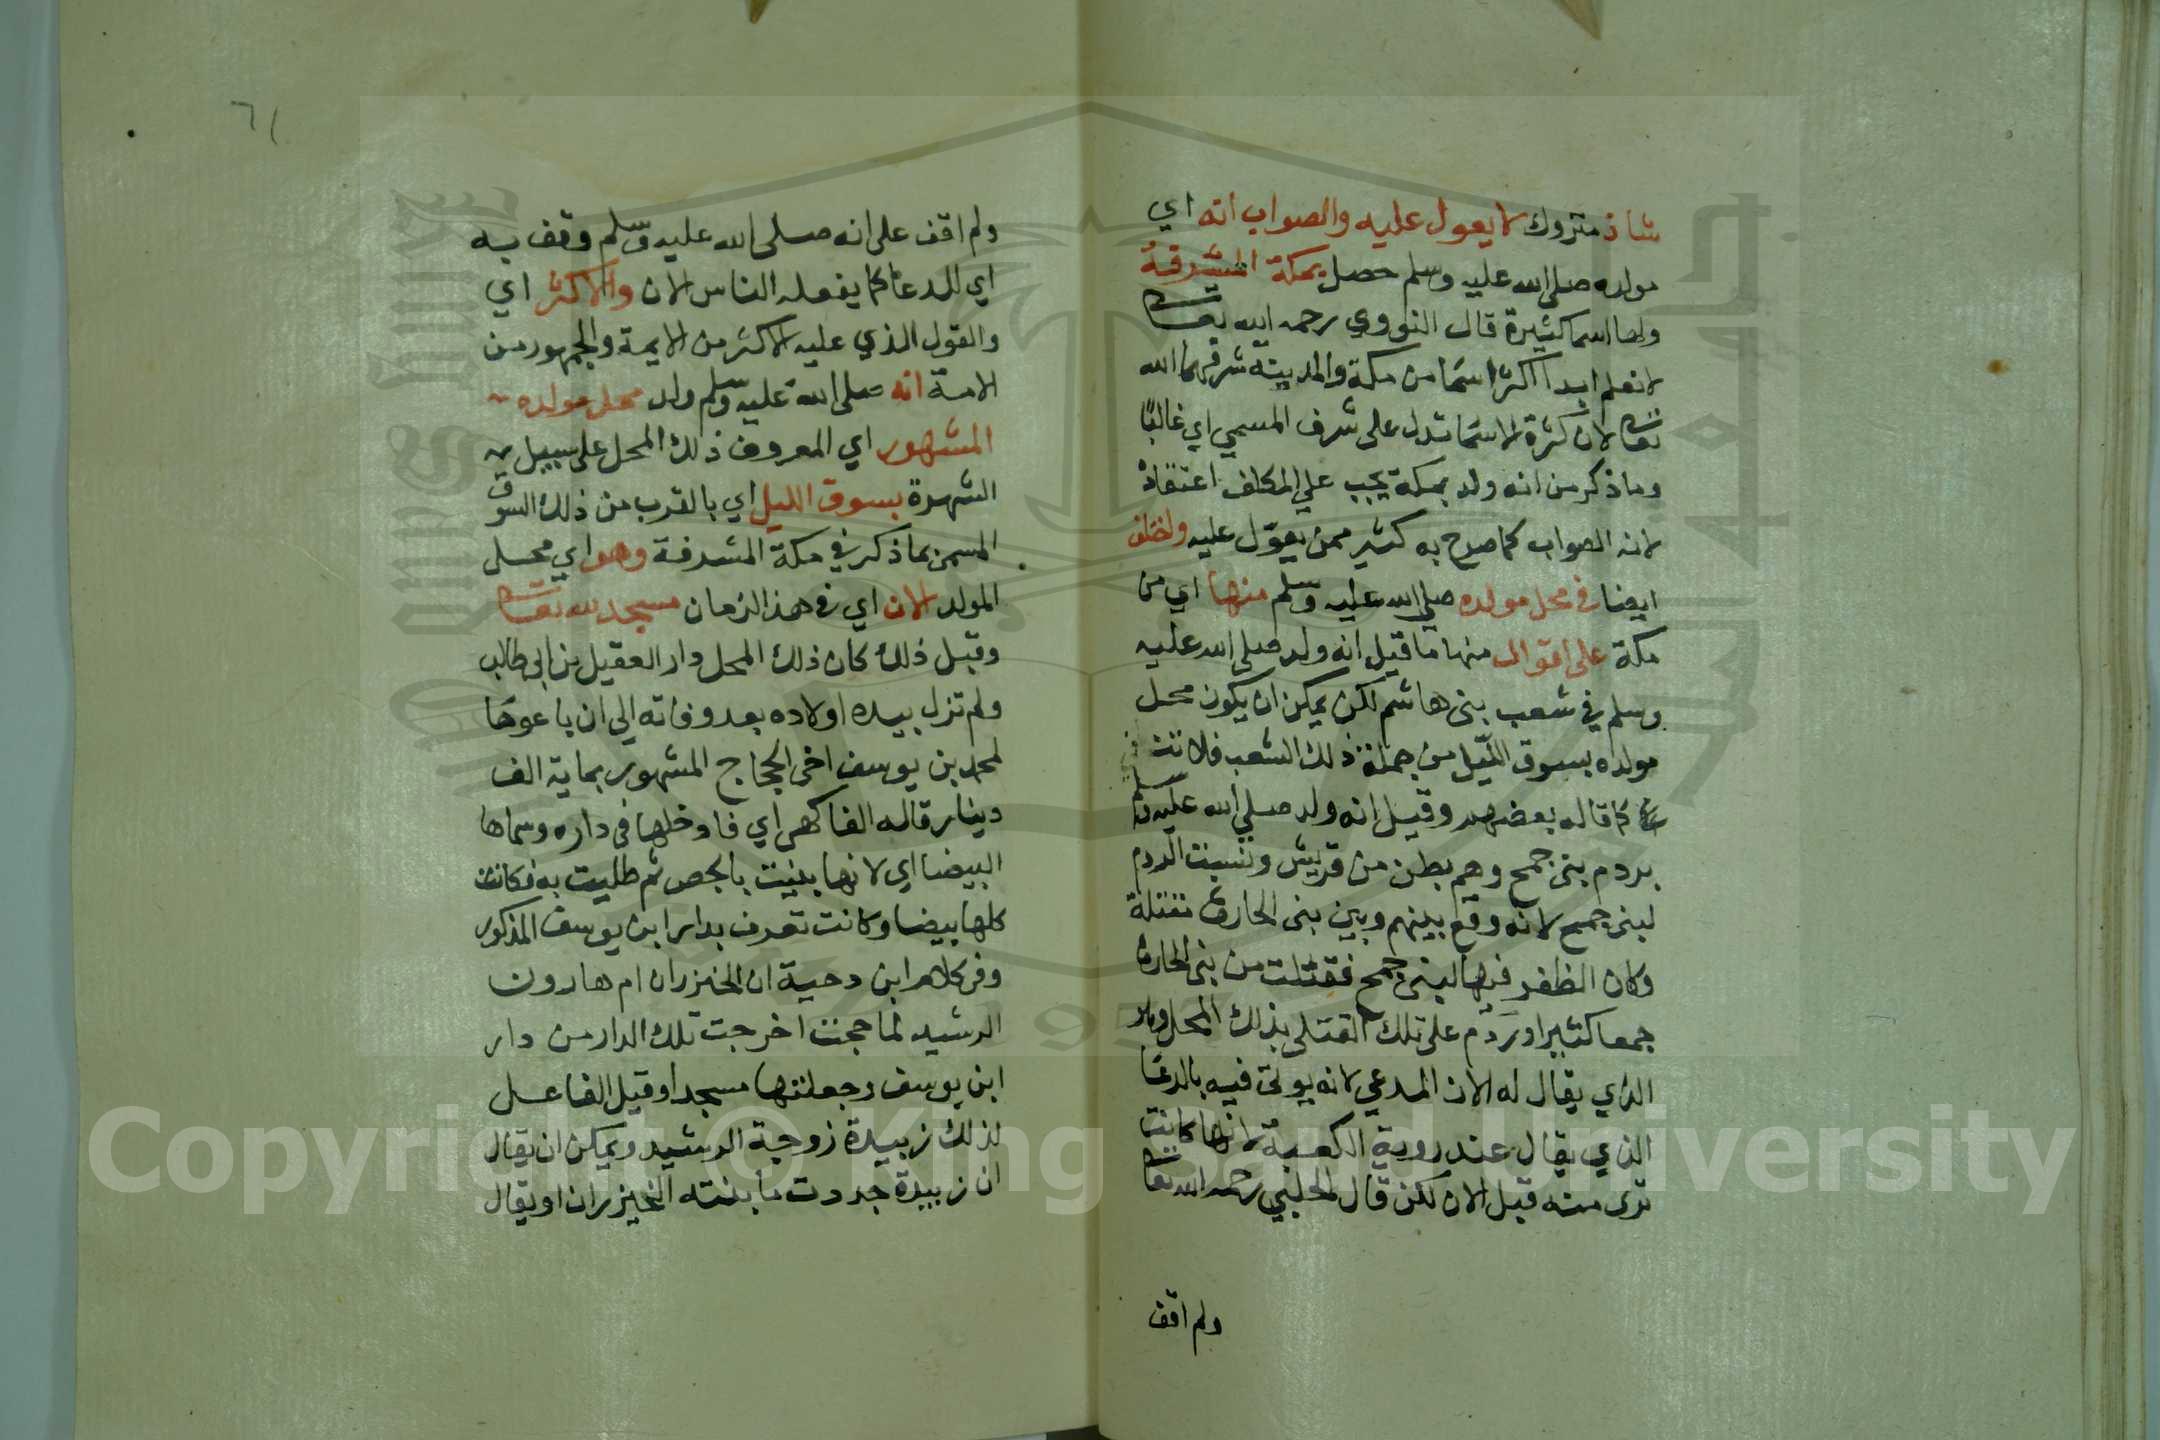 شاذ متروك لا يعول عليه والصواب انه اي
مولده صلى الله عليه وسلم حصل بمكة المشرفة
ولها اسما كثيرة قال النووي رحمه الله تعالى
لا نعلم ابدا اكثر اسما من مكة والمدينة شرفهما الله
تعالى لان كثرة الاسما تدل على شرف المسمي اي غالبا
وما ذكر من انه ولد بمكة يجب علي المكلف اعتقاده
لانه الصواب كما صرح به كثير ممن يعول عليه واختلف
ايضا في محل مولده صلى الله عليه وسلم منها اي من
مكة على اقوال منها ما قيل انه ولد صلى الله عليه
وسلم في شعب بني هاشم لكن يمكن ان يكون محل
مولده بسوق الليل من جملة ذلك الشعب فلا تنا في
كما قاله بعضهم وقيل انه ولد صلي الله عليه وسلم
بردم بني جمح وهم بطن من قريش ونسبت الردم
لبني جمح لانه وقع بينهم وبين بني الحارث مقتلة
وكان الظفر فيها لبني جمح فقتلت من بني الحارث
جمعا كثيرا وردم على تلك القتلى بذلك المحل
الذي يقال له الان المدعي لانه يوتى فيه بالدعا
الذي يقال عند روية الكعبة لانها كانت
ترى منه قبل الان لكن قال الحلبي رحمه الله تعالى
ولم اقف
٦١
ولم اقف على انه صلى الله عليه وسلم وقف به
اي للدعا كما يفعله الناس الان والاكثر اي
والقول الذي عليه الاكثر من الايمة والجمهور من
الامة انه صلى الله عليه وسلم ولد محل مولده
المشهور اي المعروف ذلك المحل على سبيل
الشهرة بسوق الليل اي بالقرب من ذلك السوق
المسمى بما ذكر في مكة المشرفة وهو اي محل
المولد الان اي في هذا الزمان مسجد لله تعالى
وقبل ذلك كان ذلك المحل دار العقيل بن ابي طالب
ولم تزل بيده اولاده بعد وفاته الي ان باعوها
لمحمد بن يوسف اخي الحجاج المشهور بماية الف
دينار قاله الفاكهي اي فادخلها في داره وسماها
البيضا اي لانها بنيت بالجص ثم طليت به فكانت
كلها بيضا وكانت تعرف بدار ابن يوسف المذكور
وفي كلام ابن دحية ان الخيزران ام هارون
الرشيد لما حجت اخرجت تلك الدار من دار
ابن يوسف وجعلتها مسجدا وقيل الفاعل
لذلك زبيدة زوجة الرشيد ويمكن ان يقال
ان زبيدة جددت ما بنته الخيزران او يقال
Copyright © King Saud University